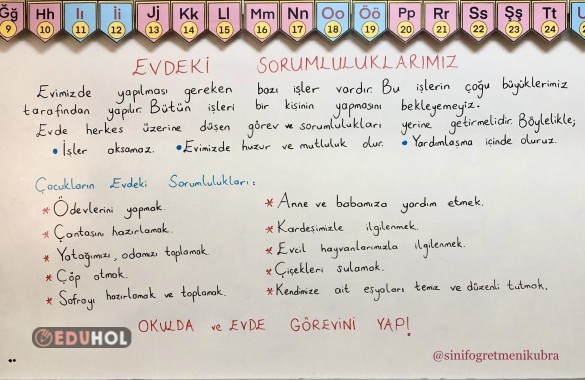 Ğğ Hh Iı İi Jj Kk Ll Mm Nn Oo Öö Pp Rr Ss Şş Tt
9 10 11 12 13 14 15 16 17 18 19 20 21 22 23 24
EVDEKİ SORUMLULUKLARIMIZ
Evimizde yapılması gereken bazı işler vardır. Bu işlerin çoğu büyüklerimiz
tarafından yapılır. Bütün işleri bir kişinin yapmasını bekleyemeyiz.
Evde herkes üzerine düşen görev ve sorumlulukları yerine getirmelidir. Böylelikle;
• İşler aksamaz. • Evimizde huzur ve mutluluk olur. • Yardımlaşma içinde oluruz.
Çocukların Evdeki Sorumlulukları:
* Ödevlerini yapmak.
* Çantasını hazırlamak.
* Yatağımızı, odamızı toplamak.
* Çöp atmak.
* Sofrayı hazırlamak ve toplamak.
* Anne ve babamıza yardım etmek.
* Kardeşimizle ilgilenmek.
* Evcil hayvanlarımızla ilgilenmek.
* Çiçekleri sulamak.
* Kendimize ait eşyaları temiz ve düzenli tutmak.
OKULDA ve EVDE GÖREVİNİ YAP!
EDUHOL
@sinifogretmenikubra